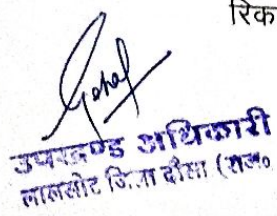 रिक
उपखण्ड अधिकारी
लालसोट जिला दौसा (राज०